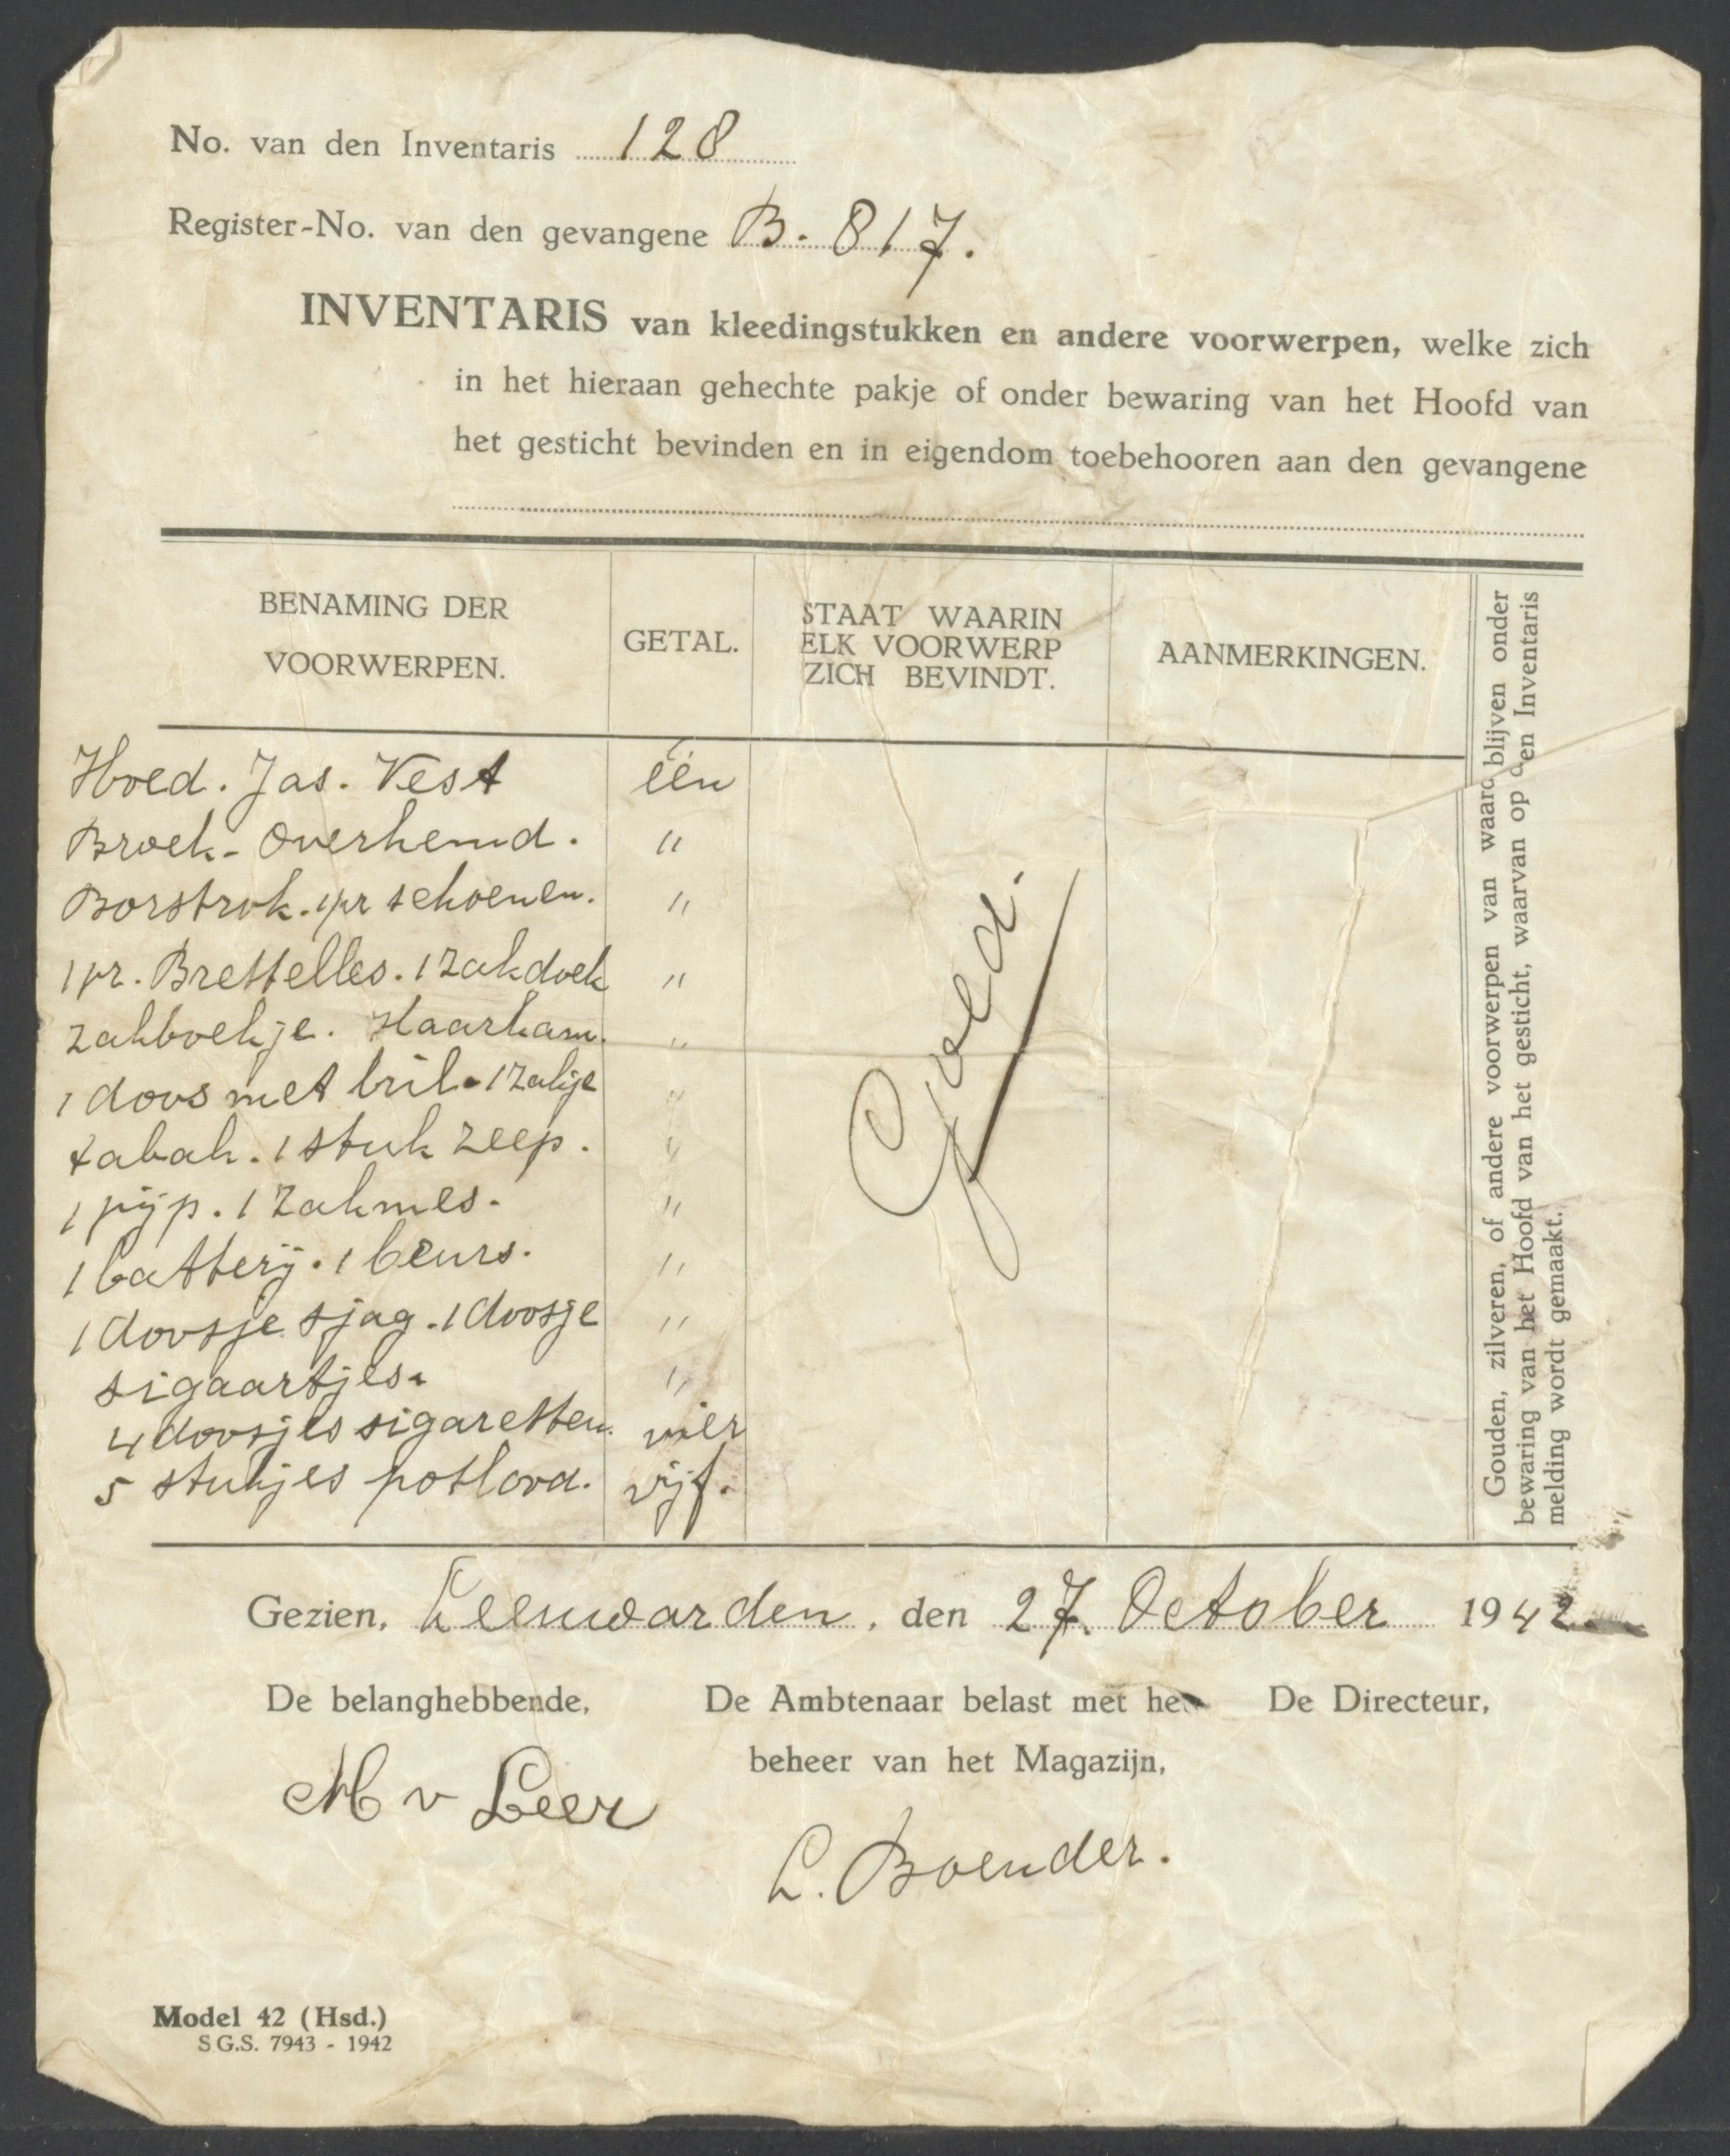 No. van den Inventaris 128
Register-No. van den gevangene B. 817.
INVENTARIS van kleedingstukken en andere voorwerpen, welke zich
in het hieraan gehechte pakje of onder bewaring van het Hoofd van
het gesticht bevinden en in eigendom toebehooren aan den gevangene
BENAMING DER
VOORWERPEN.
GETAL.
STAAT WAARIN
ELK VOORWERP
ZICH BEVINDT.
AANMERKINGEN.
Hoed. Jas. Vest één
Broek - Overhemd. "
Borstrok. 1 pr schoenen. "
1 pr. Brettelles. 1 zakdoek "
Zakboekje. Haarkam. "
1 doos met bril. 1 zakje "
tabak. 1 stuk zeep. "
1 pijp. 1 zakmes. "
1 batterij. 1 beurs. "
1 doosje sjag. 1 doosje "
sigaartjes. "
4 doosjes sigaretten. vier
5 stukjes potlood. vijf.
Goed.
Gouden, zilveren, of andere voorwerpen van waard blijven onder
bewaring van het Hoofd van het gesticht, waarvan op den Inventaris
melding wordt gemaakt.
Gezien, Leeuwarden, den 27 October 1942
De belanghebbende,
De Ambtenaar belast met het
beheer van het Magazijn,
De Directeur,
M v Leer
L. Boender.
Model 42 (Hsd.)
S G.S. 7943 - 1942